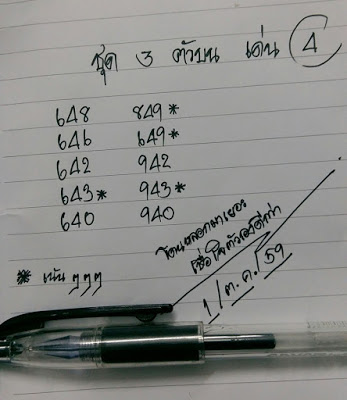 ชุด 3 ตัวบน เด่น 4
648 849*
646 649*
642 942
643* 943*
640 940
* เน้น ๆๆๆ
โดนหลอกมาเยอะ
เชื่อใจตัวเองดีกว่า
1/ต.ค./59